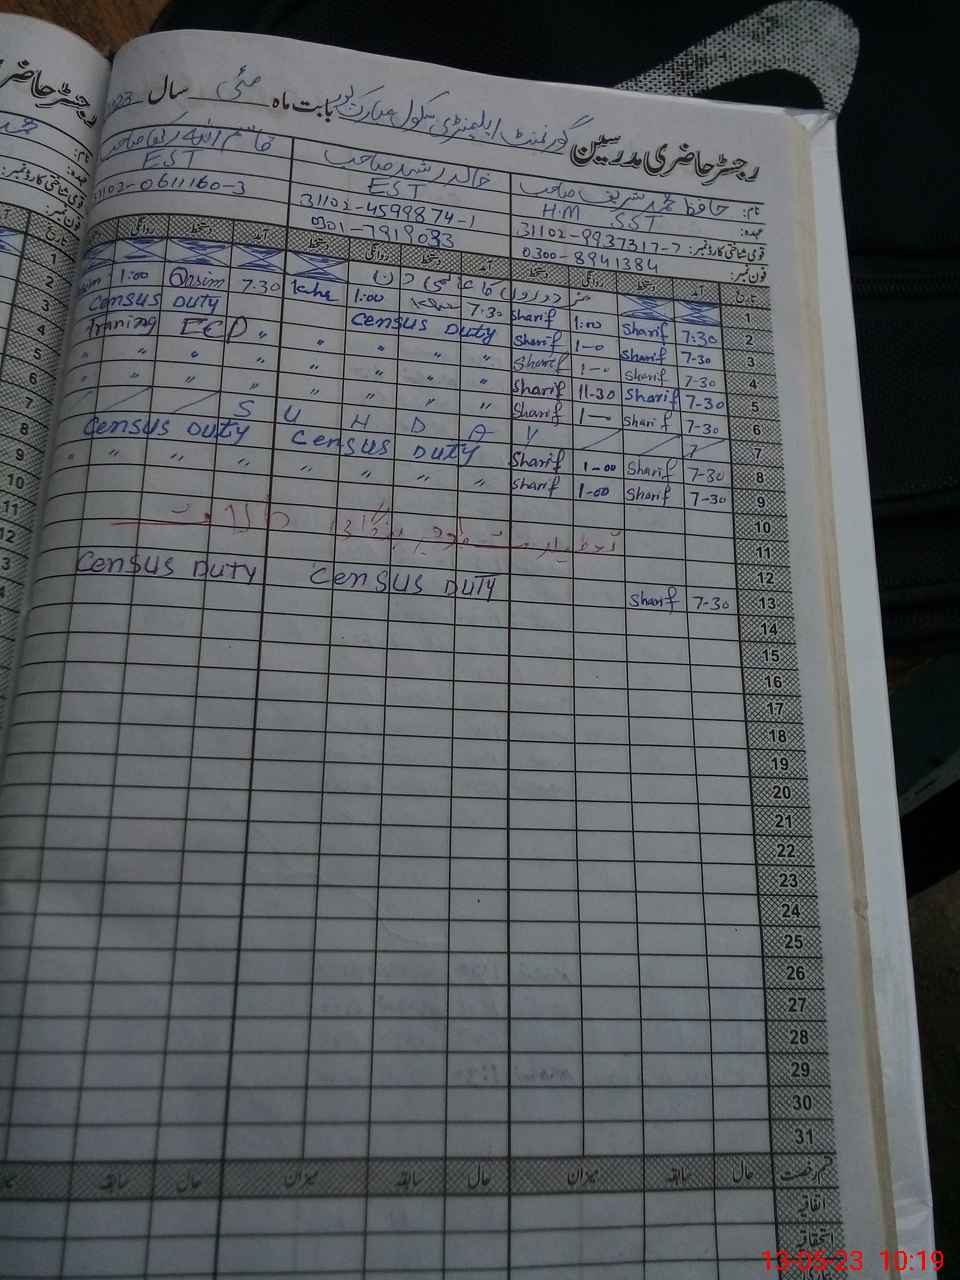 رجسٹر حاضری مدرسین گورنمنٹ ایلیمنٹری سکول مبارک پور بابت ماہ مئی سال 2023
نام: حافظ محمد شریف صاحب خالد رشید صاحب
عہدہ: H.M SST EST EST
قومی شناختی کارڈ نمبر: 31102-9937317-7 31102-4599874-1 31102-0611160-3
فون نمبر: 0300-8941384 0301-7919033
تاریخ آمد دستخط روانگی دستخط آمد دستخط روانگی دستخط آمد دستخط روانگی
1 مزدوروں کا عالمی دن
2 7:30 Sharif 1:00 Sharif 7.30 1:00 7.30 Qasim 1:00
3 7-30 Sharif 1-0 Sharif Census Duty Census Duty
4 7-30 Sharif 1-0 Sharif " " " " " ECD Traning
5 7-30 Sharif 11-30 Sharif " " " " " " " "
6 7-30 Sharif 1-0 Sharif " " " " " " " "
7 S U N D A Y
8 7-30 Sharif 1-00 Sharif Census Duty Census Duty
9 7-30 Sharif 1-00 Sharif " " " " " " "
10
11
12
13 7-30 Sharif Census Duty Census Duty
14
15
16
17
18
19
20
21
22
23
24
25
26
27
28
29
30
31
قسم رخصت حال سابقہ میزان حال سابقہ میزان حال سابقہ
اتفاقیہ
استحقاقیہ
13-05-23 10:19